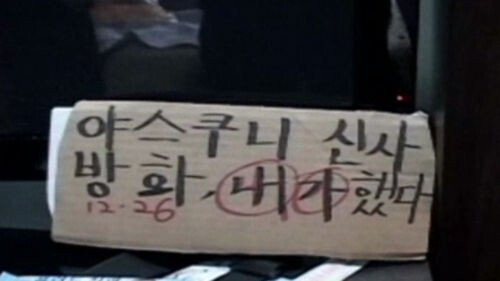 야스쿠니 신사
방화, 내가 했다
12.26